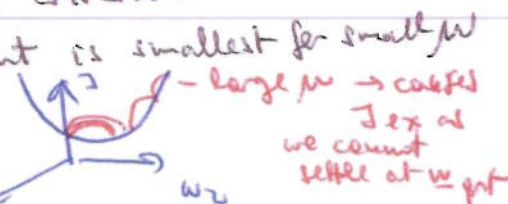 nt is smallest for small μ
J
- large μ → causes
J ex as
we cannot
settle at w opt
w2